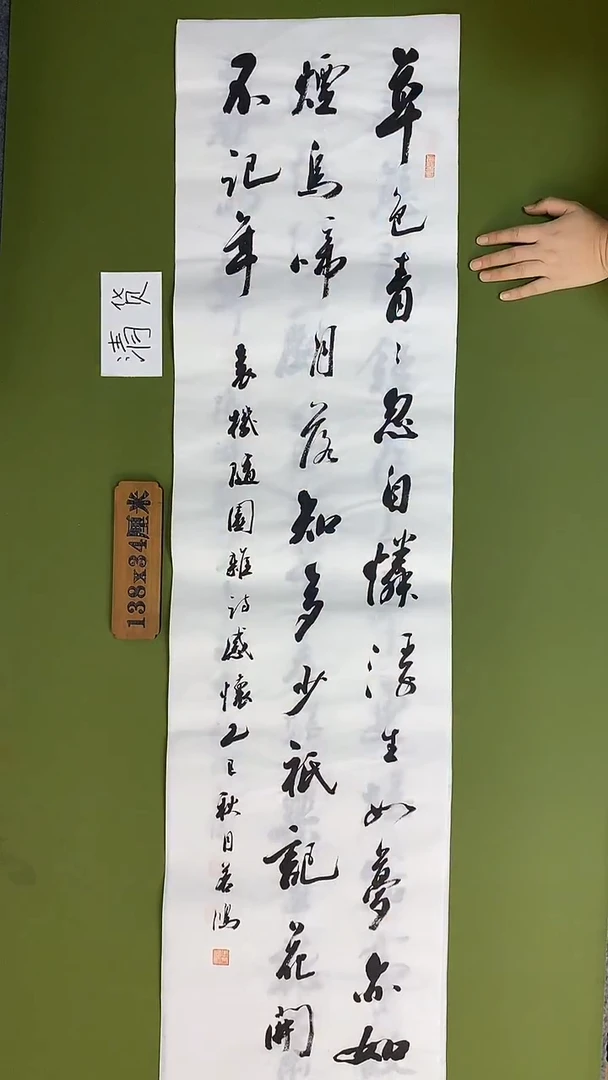 草色青〻忽自憐浮生如夢亦如
煙烏啼月落知多少祇記花開
不記年
袁機隨園雜詩感懷乙巳秋月若鴻
清货
138x34厘米